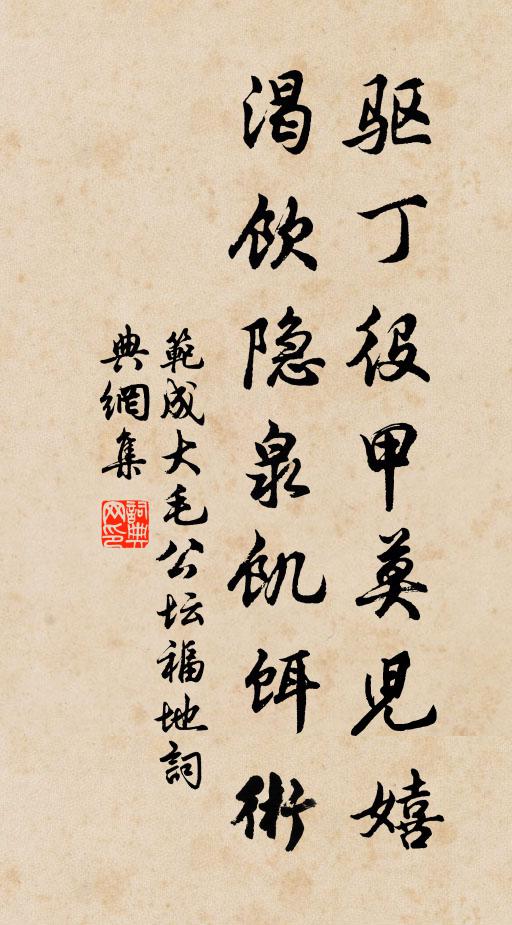 驱丁役甲莫兒嬉
渴飲隐泉飢餌術
範成大毛公坛福地詞
典網集
詞典网印